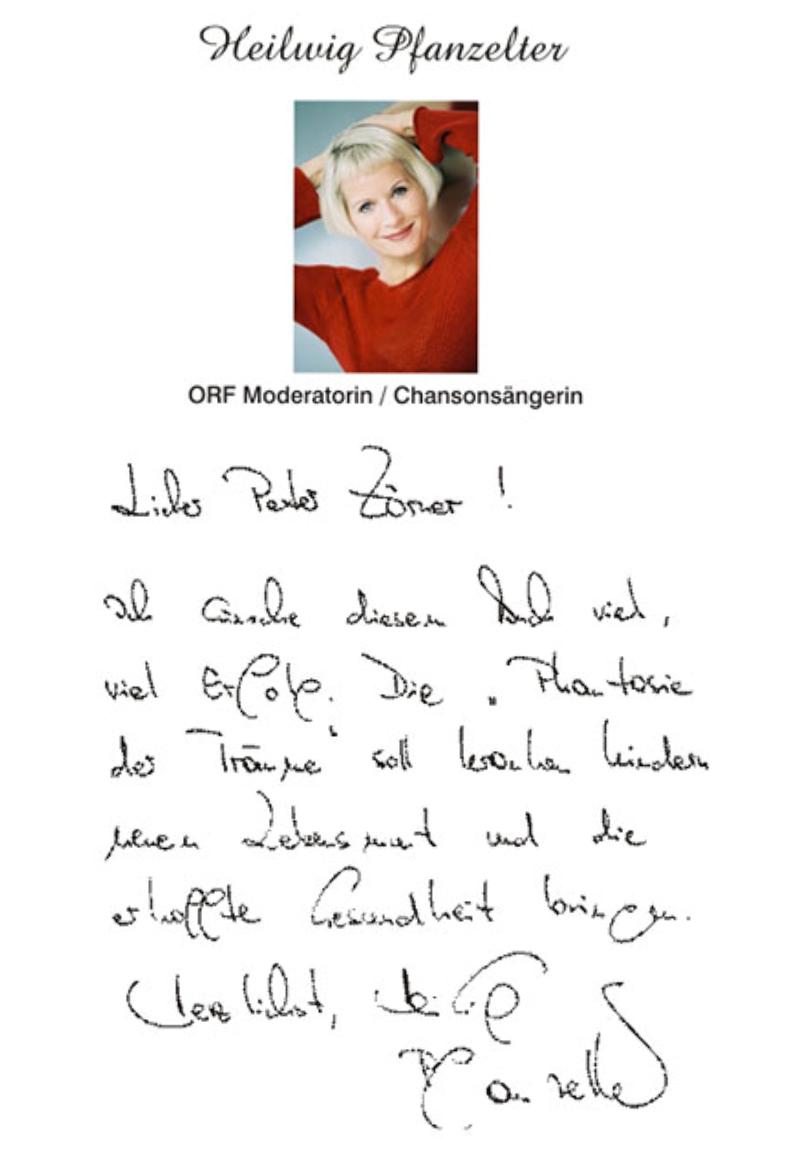 Heilwig Pfanzelter
ORF Moderatorin / Chansonsängerin
Lieber Zörner !
Ich wünsche diesem Buch viel,
viel Erfolg. Die „Phantasie
der Träume“ soll kranken Kindern
neuen Lebensmut und die
erhoffte Gesundheit bringen.
Herzlichst, Heilwig
Pfanzelter